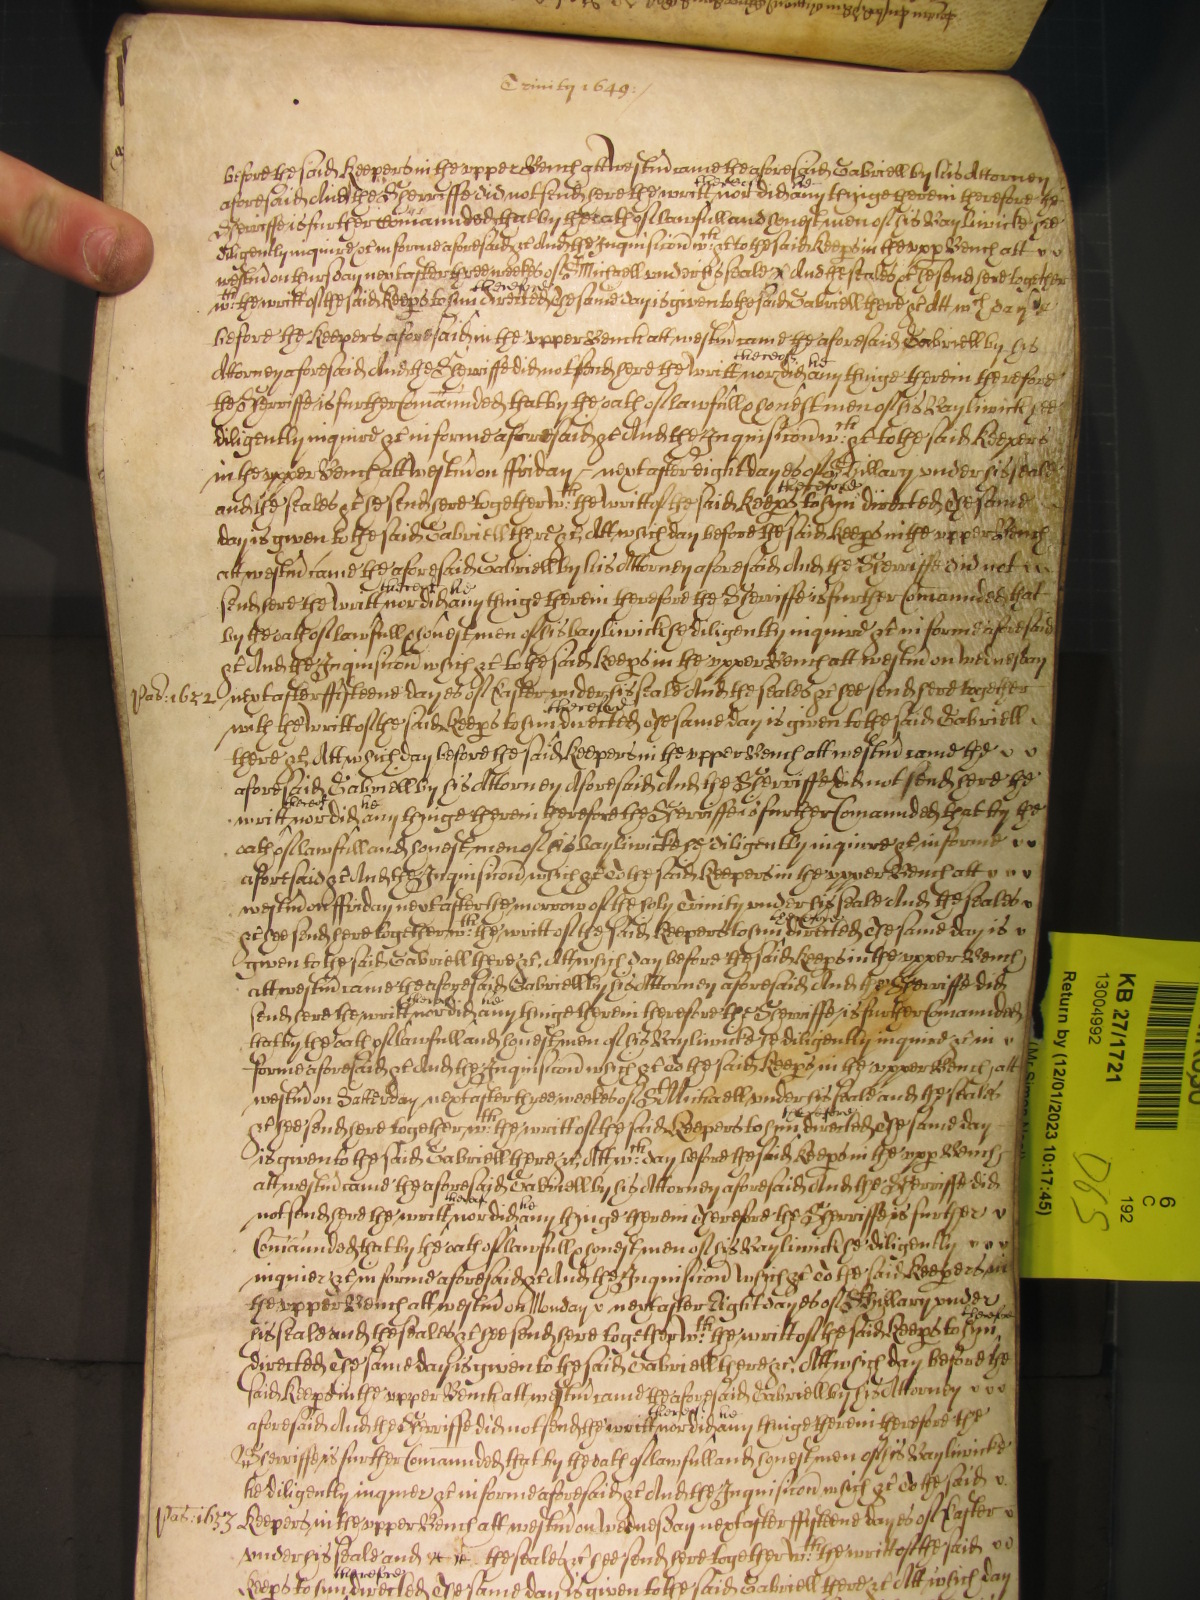 Trinity 1649:/
before the said Keepers in the upper Bench att Westm̄ came the aforesaid Gabriell by his Attorney
aforesaid And the Sherriffe did not send here the writt thereof nor did he any thinge therein therefore the
Sherriffe is further Com̄aunded that by the oath of lawfull and honest men of his Bayliwicke he
diligently inquire &c in forme aforesaid &c And the Inquisic̄on wch &c to the said Keeps in the upp Bench att
Westm̄ on thursday next after three weekes of St Michaell under his seale & And the seales &c he send here together
wth the writt of the said Keeps to him therefore directed The same day is given to the said Gabriell there &c Att wch day
before the Keepers aforesaid in the upper Bench att Westm̄ came the aforesaid Gabriell by his
Attorney aforesaid And the Sherriffe did not send here the writt thereof nor did he any thinge therein therefore
the Sherriffe is further Com̄aunded that by the oath of lawfull & honest men of his Bayliwick hee
diligently inquire &c in forme aforesaid &c And the Inquisic̄on wch &c to the said Keepers
in the upper Bench att Westm̄ on ffriday next after eight dayes of St Hillary under his seale
and the seales &c he send here together wth the writt of the said Keeps to him therefore directed The same
day is given to the said Gabriell there &c, Att which day before the said Keeps in the upper Bench
att Westm̄ came the aforesaid Gabriell by his Attorney aforesaid And the Sherriffe did not
send here the writt thereof nor did he any thinge therein therefore the Sherriffe is further Com̄aunded that
by the oath of lawfull & honest men of his bayliwick he diligently inquire &c in forme aforesaid
&c And the Inquisic̄on which &c to the said Keeps in the upper Bench att Westm̄ on Wednesday
Pas: 1652 next after ffifteene dayes of Easter under his seale And the seales &c hee send here together
with the writt of the said Keeps to him therefore directed The same day is given to the said Gabriell
there &c, Att which day before the said Keepers in the upper Bench att Westm̄ came the
aforesaid Gabriell by his Attorney Aforesaid And the Sherriffe did not send here the
writt thereof nor did he any thinge therein therefore the Sherriffe is further Com̄aunded that by the
oath of lawfull and honest men of his bayliwicke he diligently inquire &c in forme
aforesaid &c And the Inquisic̄on which &c To the said Keepers in the upper Bench att
Westm̄ on ffriday next after the morrow of the holy Trinity under his seale And the seales
&c hee send here together wth the writt of the said Keepers to him therefore directed The same day is
given to the said Gabriell there &c, Att which day before the said Keeps in the upper Bench
att Westm̄ came the aforesaid Gabriell by his Attorney aforesaid And the Sherriffe did
send here the writt thereof nor did he any thinge therein therefore the Sherriffe is further Com̄aunded
that by the oath of lawfull and honest men of his Bayliwicke he diligently inquire &c in
forme aforesaid &c And the Inquisic̄on which &c To the said Keepers in the upper Bench att
Westm̄ on Satterday next after three weekes of St Michaell under his seale and the seales
&c hee send here together wth the writt of the said Keepers to him therefore directed The same day
is given to the said Gabriell there &c, Att wch day before the said Keeps in the upp Bench
att Westm̄ came the aforesaid Gabriell by his Attorney aforesaid And the Sherriffe did
not send here the writt thereof nor did he any thinge therein Therefore the Sherriffe is further
Com̄aunded that by the oath of lawfull & honest men of his Bayliwick he diligently
inquier &c in forme aforesaid &c And the Inquisic̄on Which &c To the said Keepers in
the upper Bench att Westm̄ on Monday next after Eight dayes of St Hillary under
his seale and the seales &c hee send here together wth the writt of the said Keeps to him therefore
directed The same day is given to the said Gabriell there &c. Att which day before the
said Keeps in the upper Bench att Westm̄ came the aforesaid Gabriell by his Attorney
aforesaid And the Sherriffe did not send the writt thereof nor did he any thinge therein therefore the
Sherriffe is further Com̄aunded that by the oath of lawfull and honest men of his Bayliwicke
he diligently inquier &c in forme aforesaid &c And the Inquisic̄on which &c To the said
Pas: 1653 Keepers in the upper Bench att Westm̄ on Wednesday next after ffifteene dayes of Easter
under his seale and the seales &c hee send here together wth the writt of the said
Keeps to him therefore directed The same day is given to the said Gabriell there &c Att which day
KB 27/1721
13004992
Return by (12/01/2023 10:17:45)
6
C
192
D65